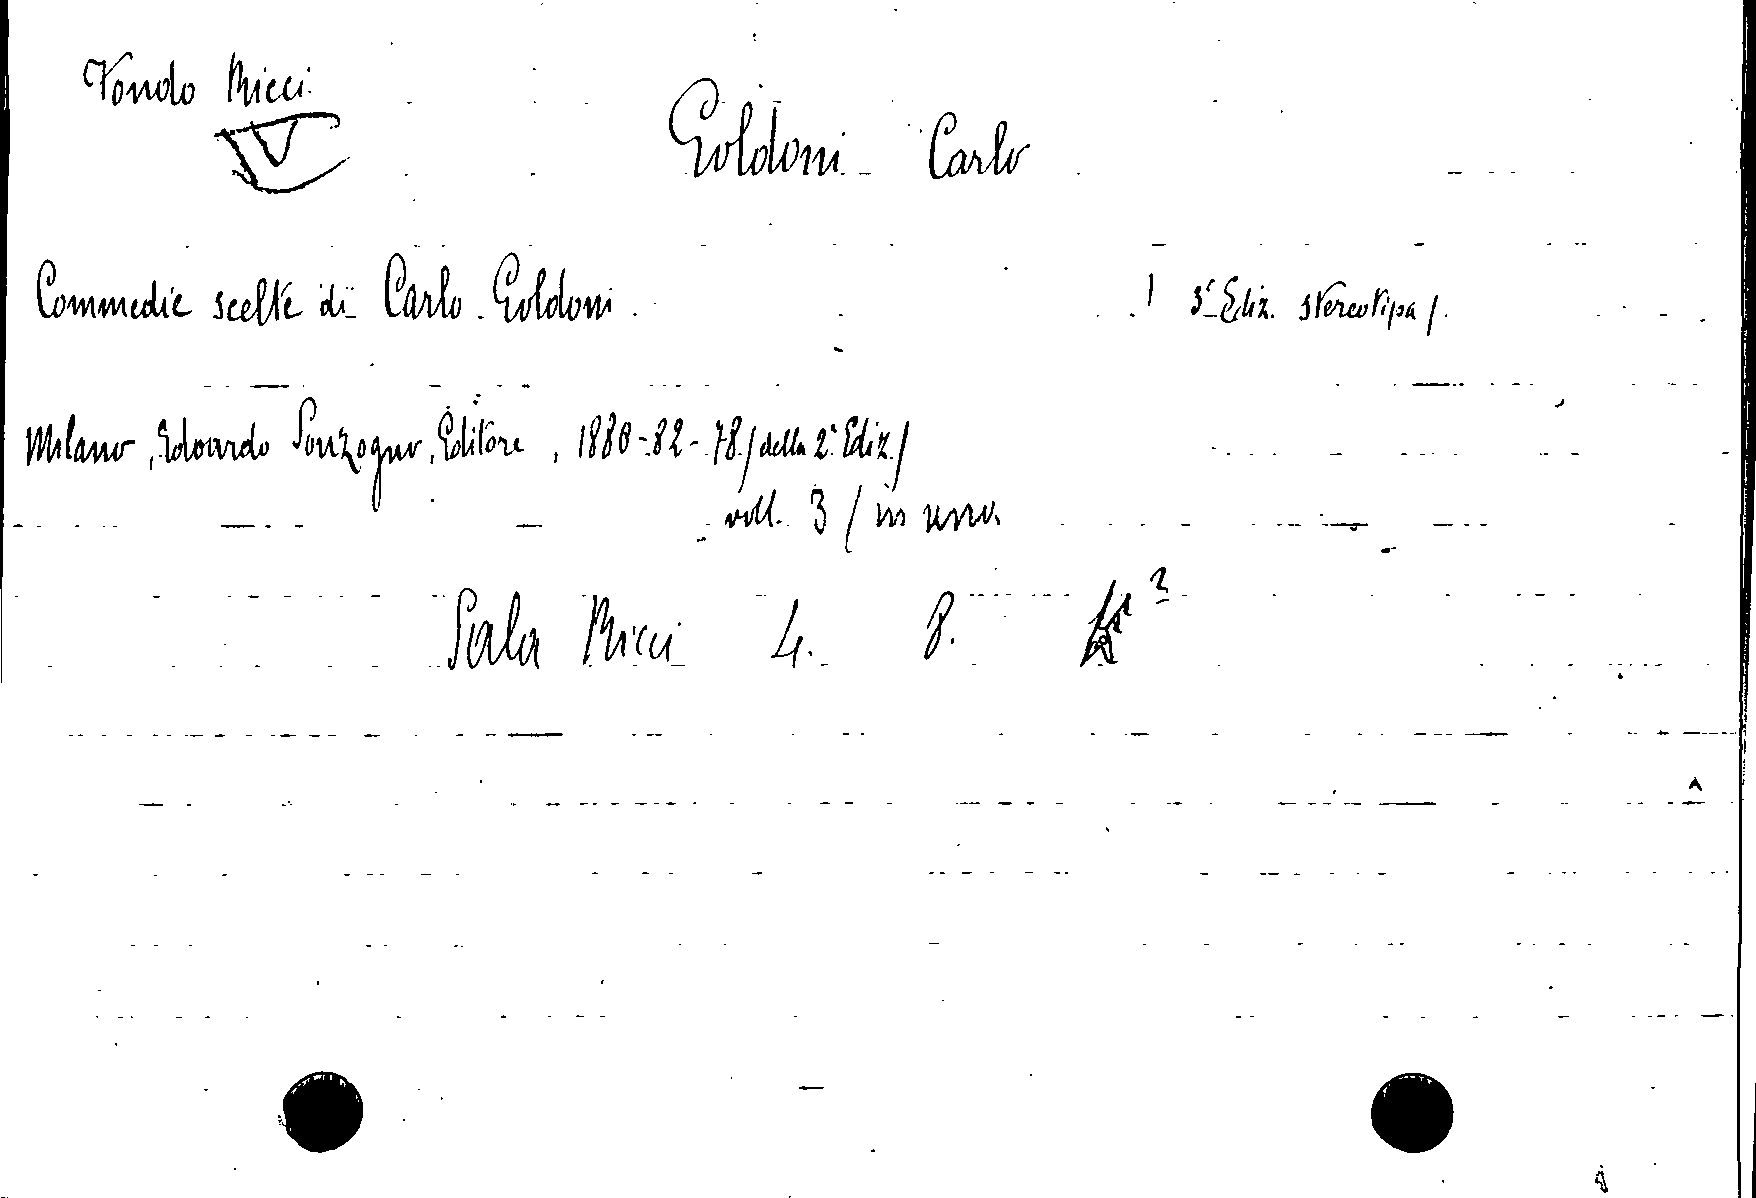 Fondo Ricci
Goldoni Carlo
Commedie scelte di Carlo Goldoni. / 3ª Ediz. stereotipa /.
Milano, Edoardo Sonzogno, Editore, 1880-82-78 / della 2ª Ediz. /
voll. 3 / in uno.
Sala Ricci 4. 8.